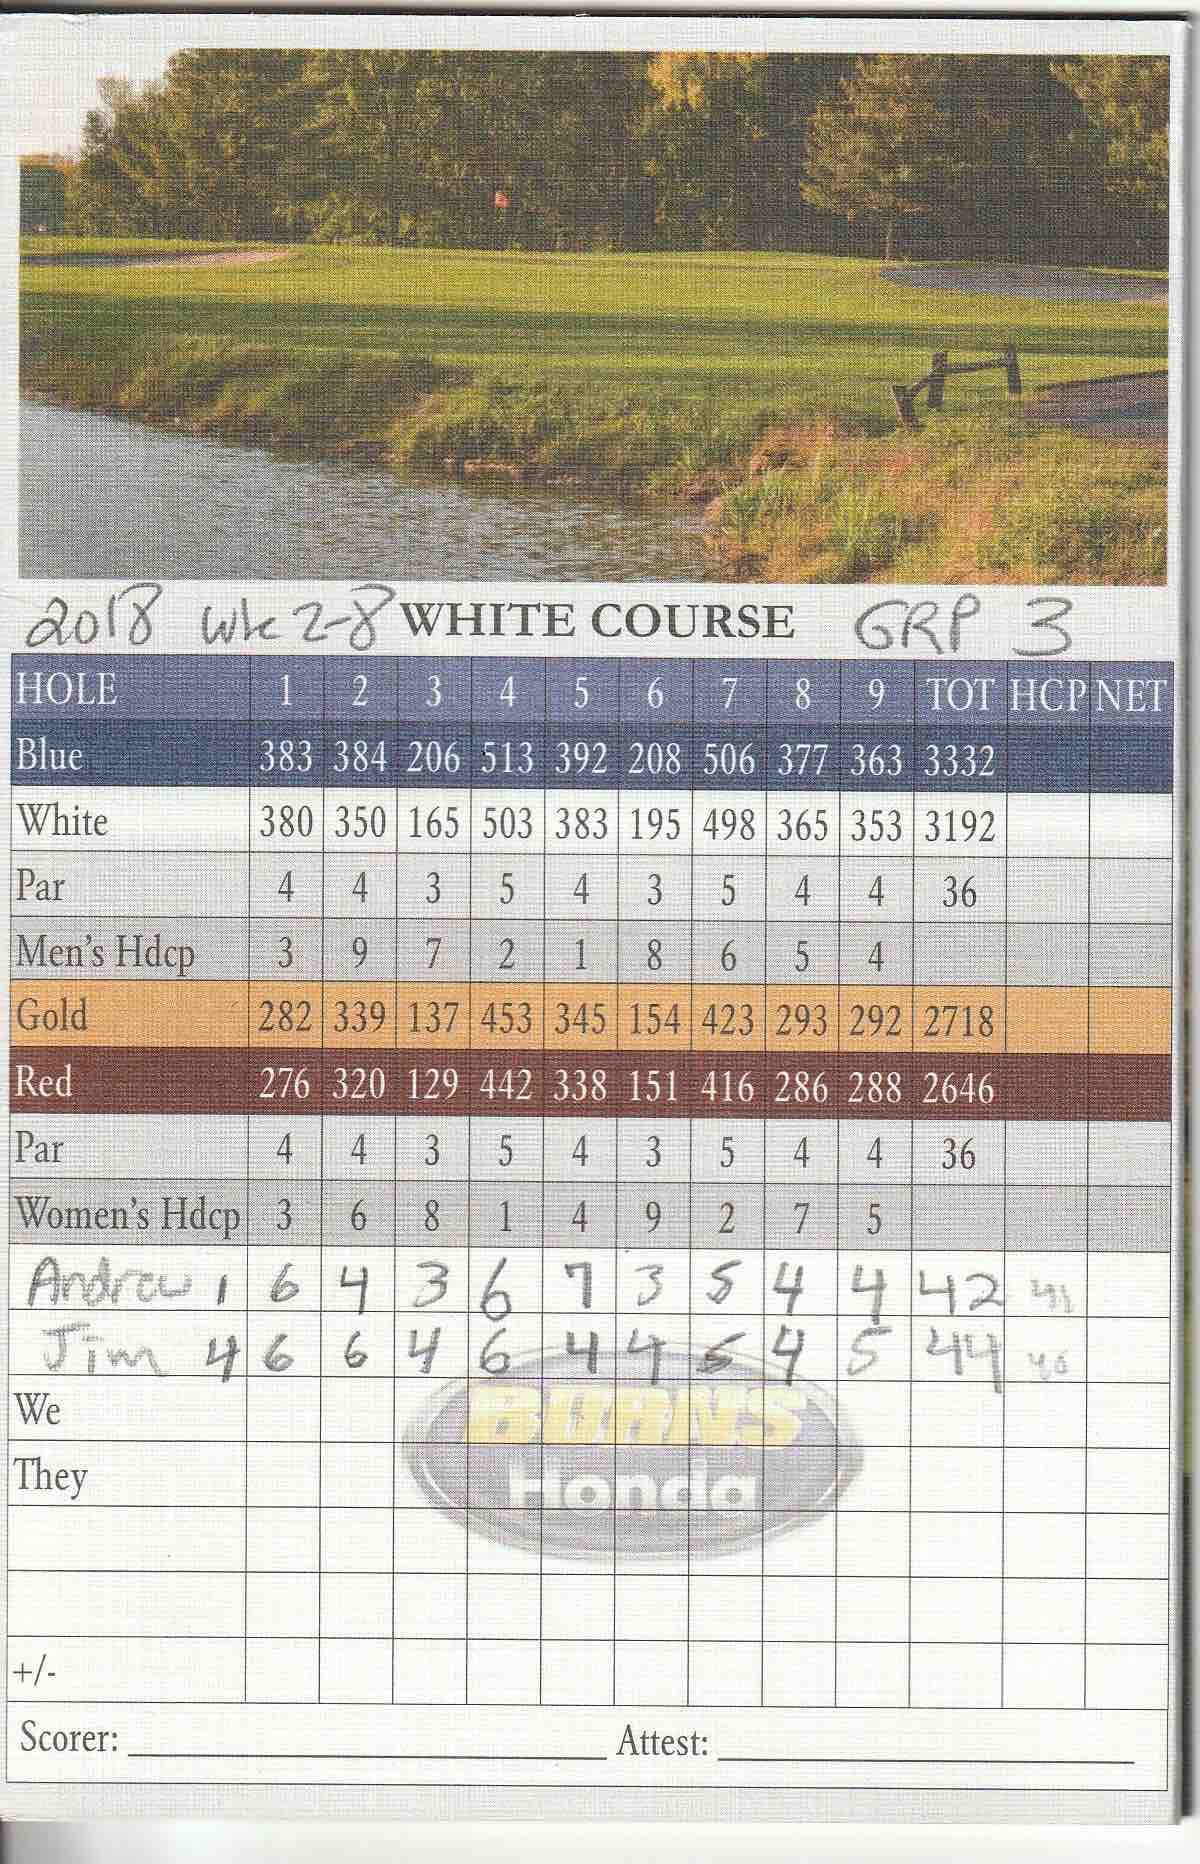 2018 wk 2-8 WHITE COURSE GRP 3
HOLE 1 2 3 4 5 6 7 8 9 TOT HCP NET
Blue 383 384 206 513 392 208 506 377 363 3332
White 380 350 165 503 383 195 498 365 353 3192
Par 4 4 3 5 4 3 5 4 4 36
Men's Hdcp 3 9 7 2 1 8 6 5 4
Gold 282 339 137 453 345 154 423 293 292 2718
Red 276 320 129 442 338 151 416 286 288 2646
Par 4 4 3 5 4 3 5 4 4 36
Women's Hdcp 3 6 8 1 4 9 2 7 5
Andrew 1 6 4 3 6 7 3 5 4 4 42
Jim 4 6 6 4 6 4 4 5 4 5 44 40
We
They
BURNS
Honda
+/-
Scorer: Attest: